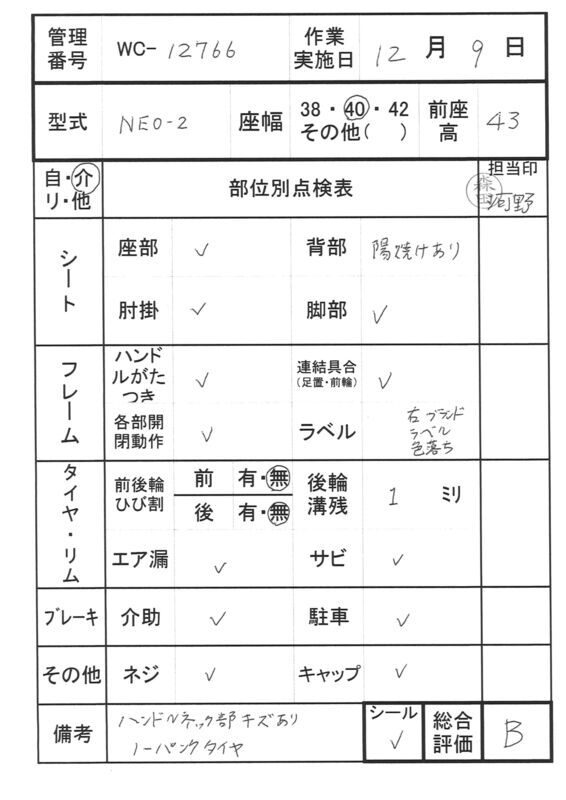 管理番号 WC- 12766 作業実施日 12 月 9 日
型式 NEO-2 座幅 38・40・42 その他( ) 前座高 43
自・介 リ・他 部位別点検表 担当印 森田 河野
シート 座部 ✓ 背部 陽焼けあり
肘掛 ✓ 脚部 ✓
フレーム ハンドルがたつき ✓ 連結具合(足置・前輪) ✓
各部開閉動作 ✓ ラベル 右ブランドラベル色落ち
タイヤ・リム 前後輪ひび割 前 有・無 後輪溝残 1 ミリ
後 有・無
エア漏 ✓ サビ ✓
ブレーキ 介助 ✓ 駐車 ✓
その他 ネジ ✓ キャップ ✓
備考 ハンドルネック部キズあり シール ✓ 総合評価 B
ノーパンクタイヤ